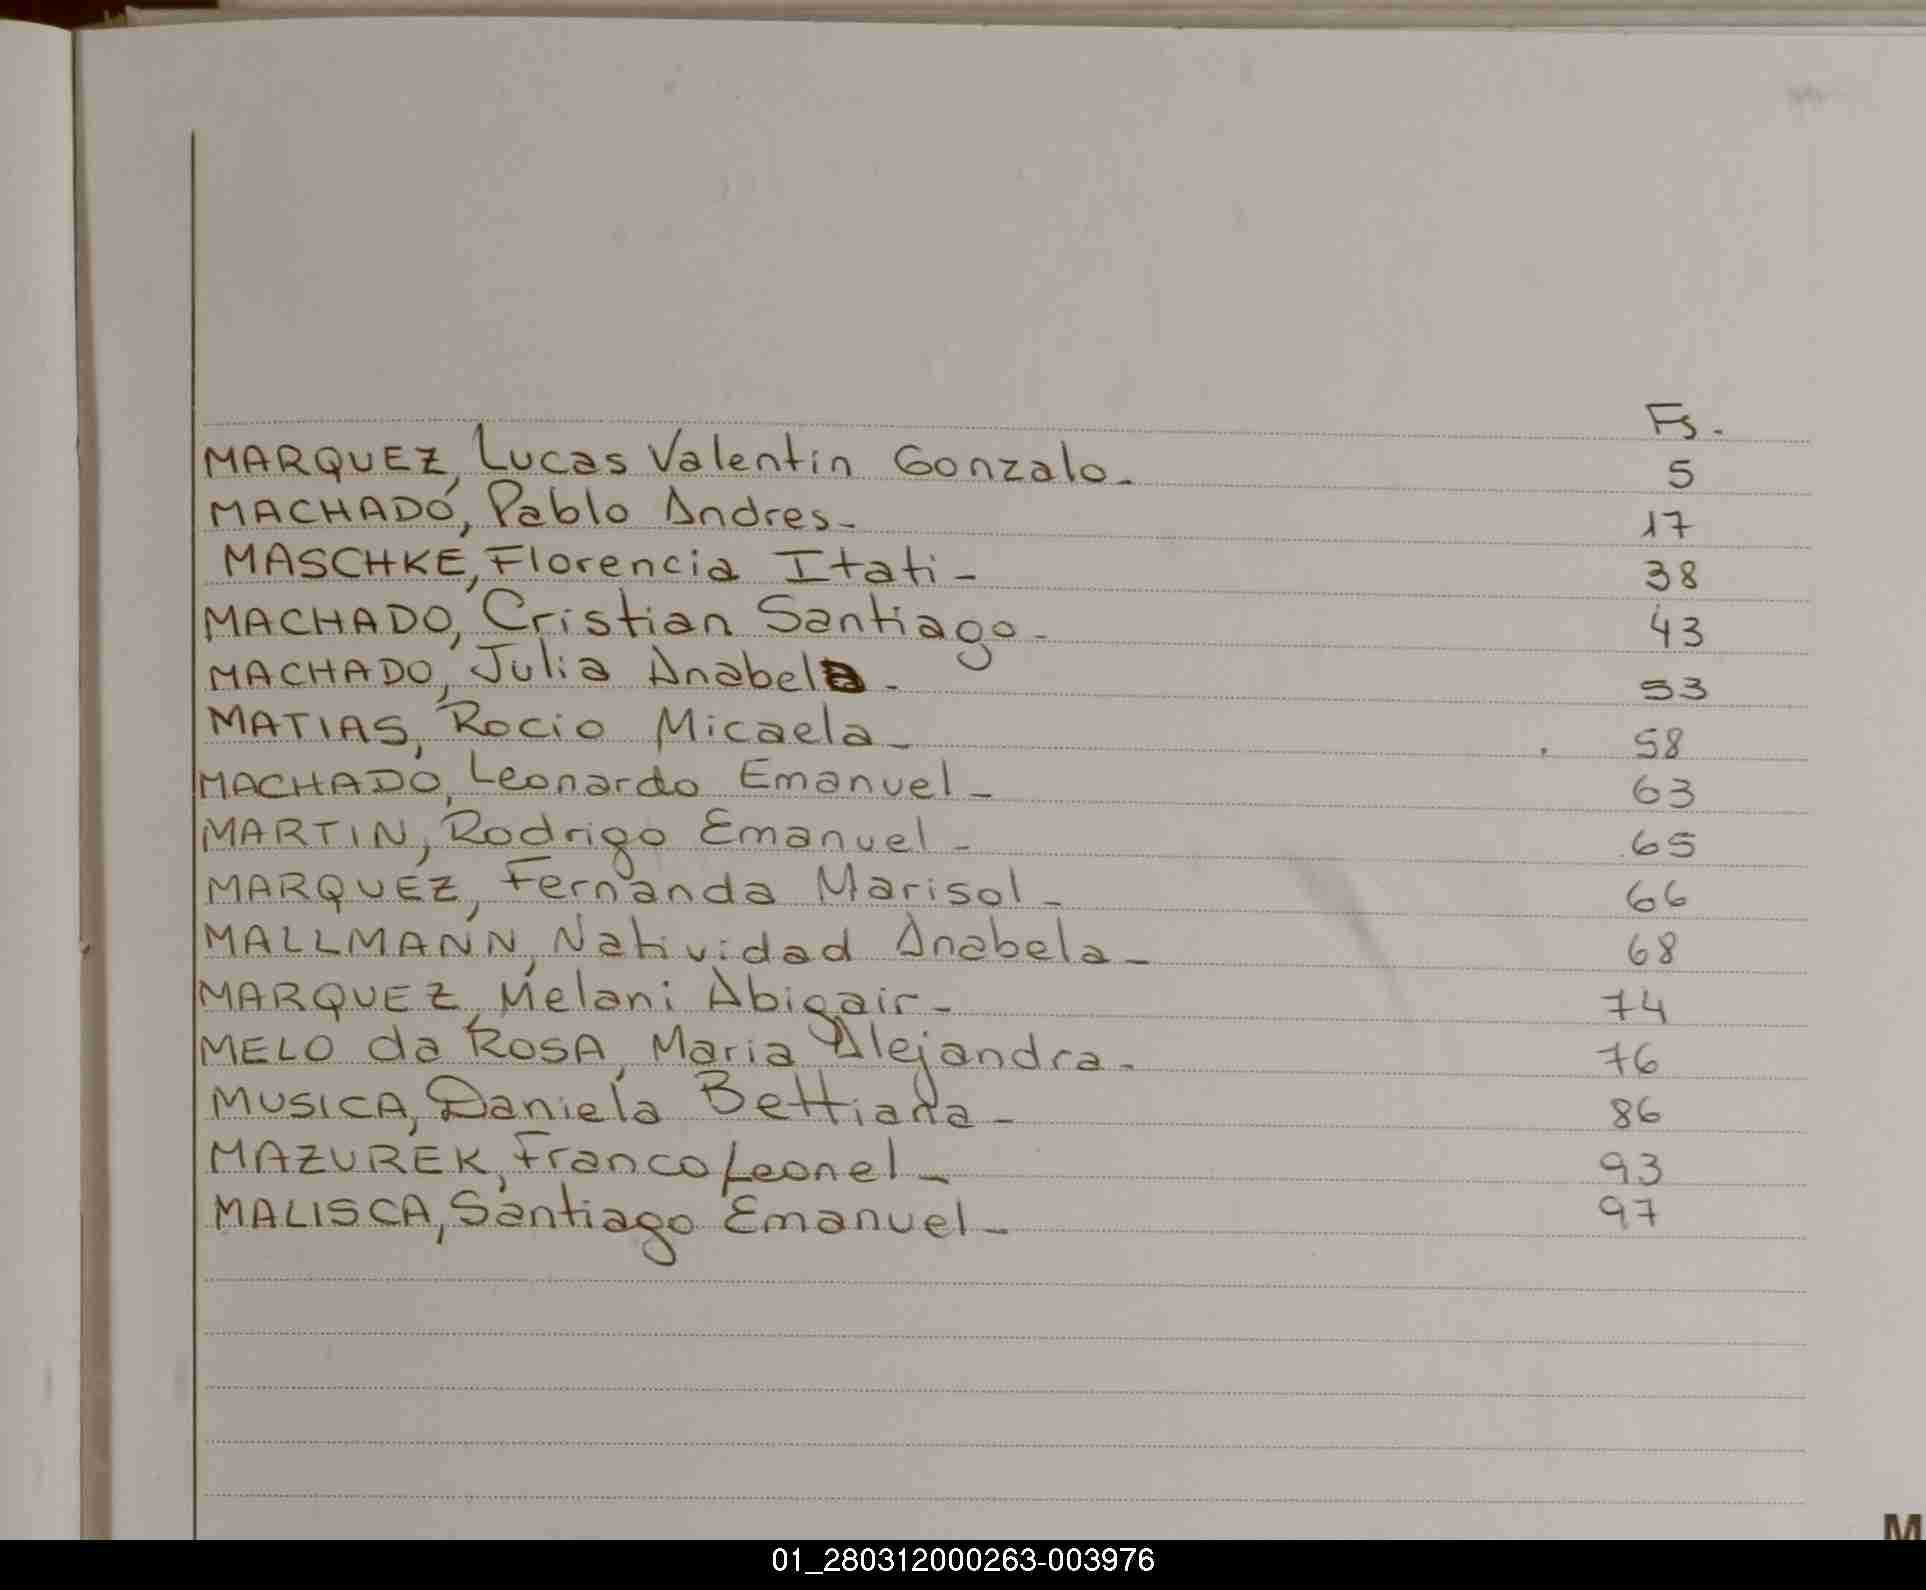 Fs.
MARQUEZ, Lucas Valentin Gonzalo. 5
MACHADO, Pablo Andres- 17
MASCHKE, Florencia Itati - 38
MACHADO, Cristian Santiago- 43
MACHADO, Julia Anabela - 53
MATIAS, Rocio Micaela - 58
MACHADO, Leonardo Emanuel - 63
MARTIN, Rodrigo Emanuel - 65
MARQUEZ, Fernanda Marisol - 66
MALLMANN, Natividad Anabela - 68
MARQUEZ, Melani Abigair - 74
MELO da ROSA, Maria Alejandra - 76
MUSICA, Daniela Bettiana - 86
MAZUREK, Franco Leonel - 93
MALISCA, Santiago Emanuel - 97
M
01_280312000263-003976